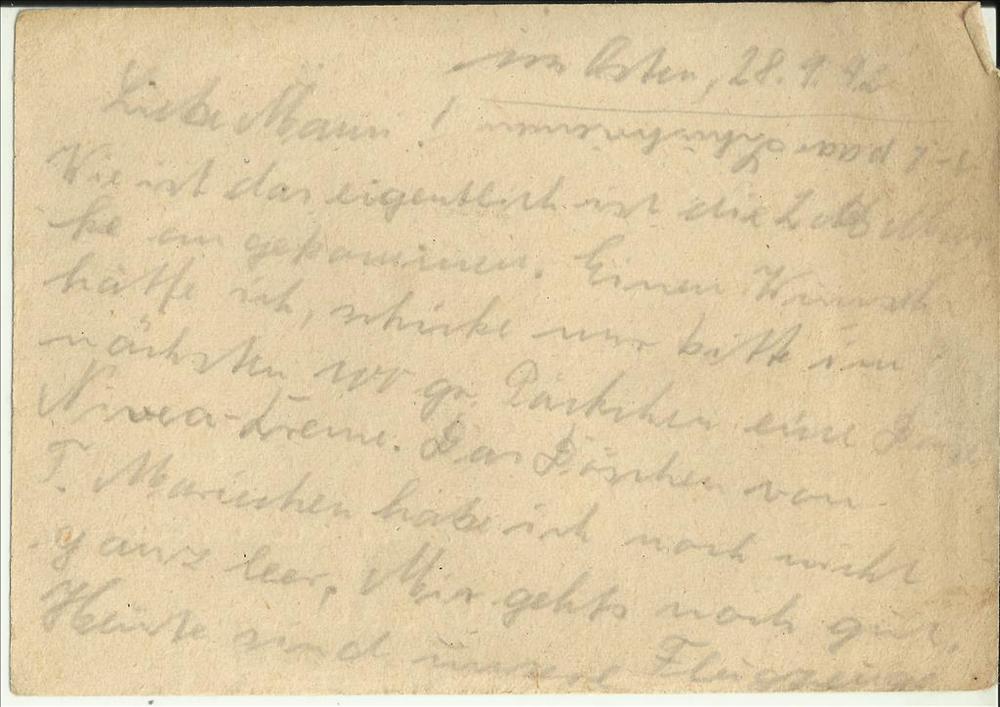 im Osten, 28.9.42
Liebe Mami!
1-2 paar Schuhriemen
Wie ist das eigentlich ist die 2 
ke angekommen. Einen Wunsch
hätte ich, schicke mir bitte im
nächsten 100 gr. Päckchen eine Dose
Nivea-Creme. Das Döschen von
T. Mariechen habe ich noch nicht
ganz leer. Mir gehts noch gut.
Heute sind unsere Flugzeuge